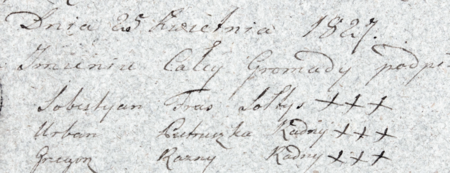 Dnia 25 Kwietnia 1827.
Imieniu Całey Gromady podp
Sobestyan Tras Sołtys +++
Urban Pietruszka Radny +++
Gregor Razny Radny +++